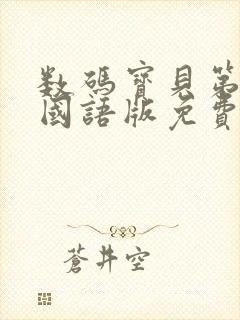 数碼寶見第
國語版免費
蒼井空